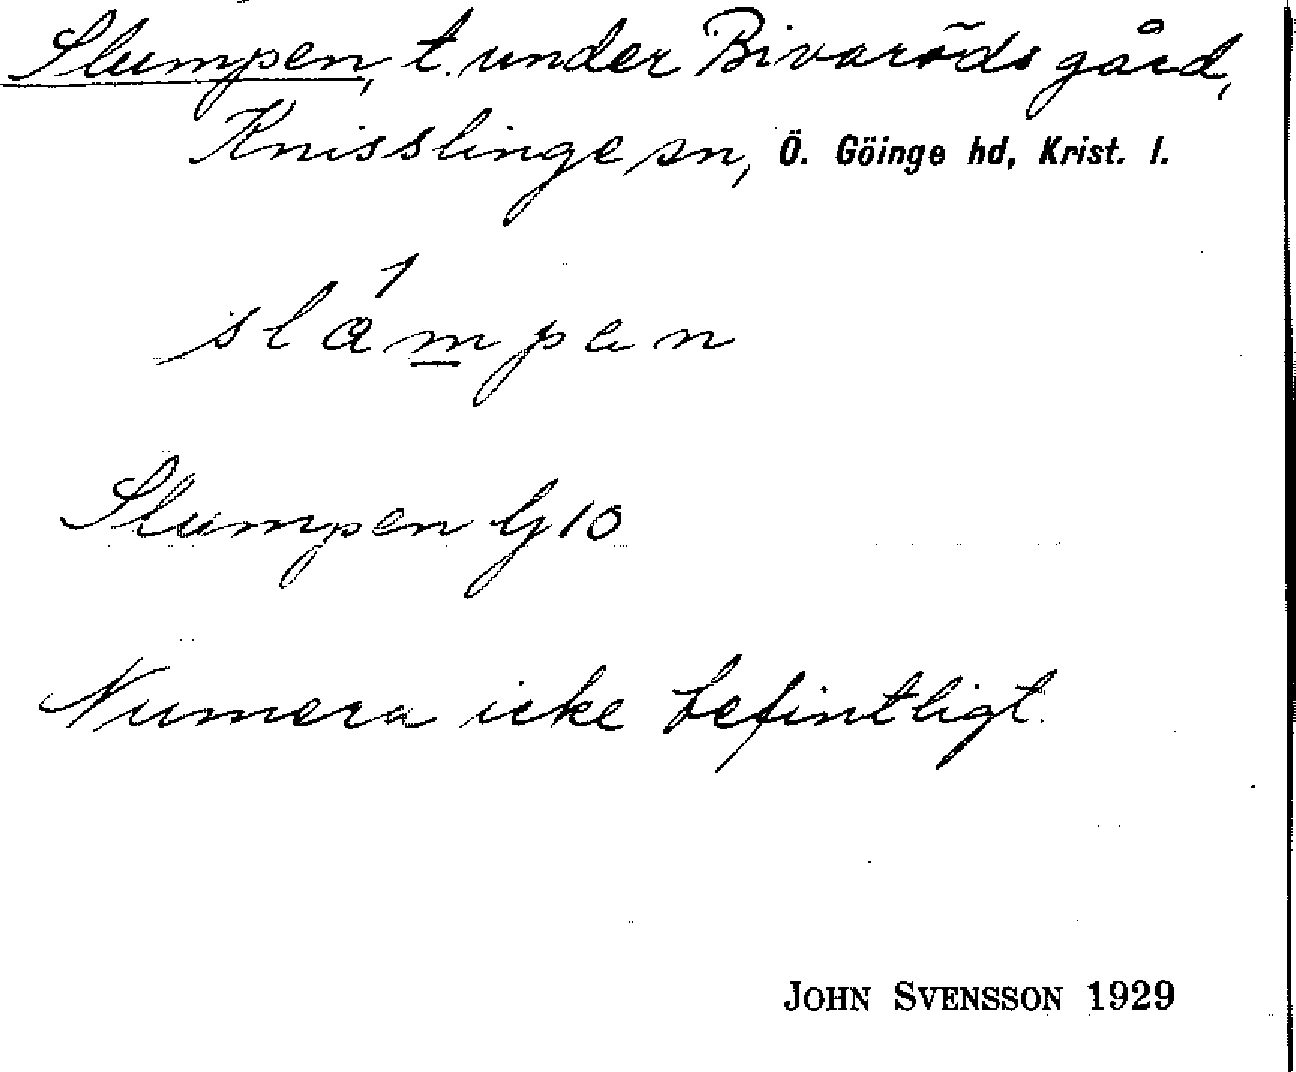 Slumpen, t. under Bivaröds gård,
Knisslinge sn, Ö. Göinge hd, Krist. l.
slампen
Slumpen G10
Numera icke befintligt.
JOHN SVENSSON 1929